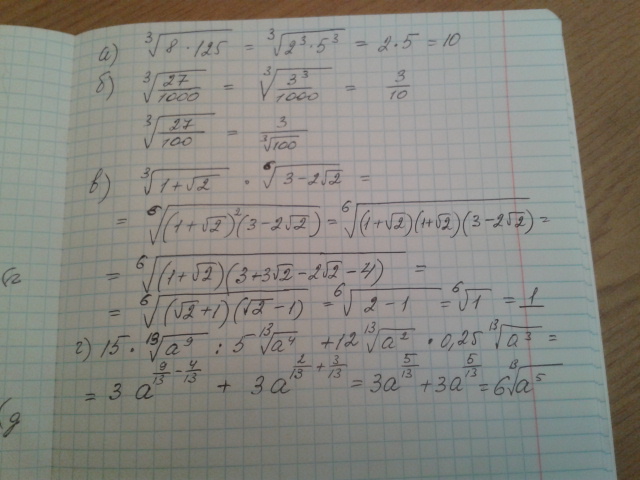 а) ∛(8 · 125) = ∛(2³ · 5³) = 2 · 5 = 10
б) ∛(27/1000) = ∛(3³/1000) = 3/10
∛(27/100) = 3/∛100
в) ∛(1+√2) · ⁶√(3-2√2) =
= ⁶√((1+√2)²(3-2√2)) = ⁶√((1+√2)(1+√2)(3-2√2)) =
= ⁶√((1+√2)(3+3√2-2√2-4)) =
= ⁶√((√2+1)(√2-1)) = ⁶√(2-1) = ⁶√1 = 1
г) 15 · ¹³√a⁹ : 5 ¹³√a⁴ + 12 ¹³√a² · 0,25 ¹³√a³ =
= 3a^(9/13 - 4/13) + 3a^(2/13 + 3/13) = 3a^(5/13) + 3a^(5/13) = 6 ¹³√a⁵